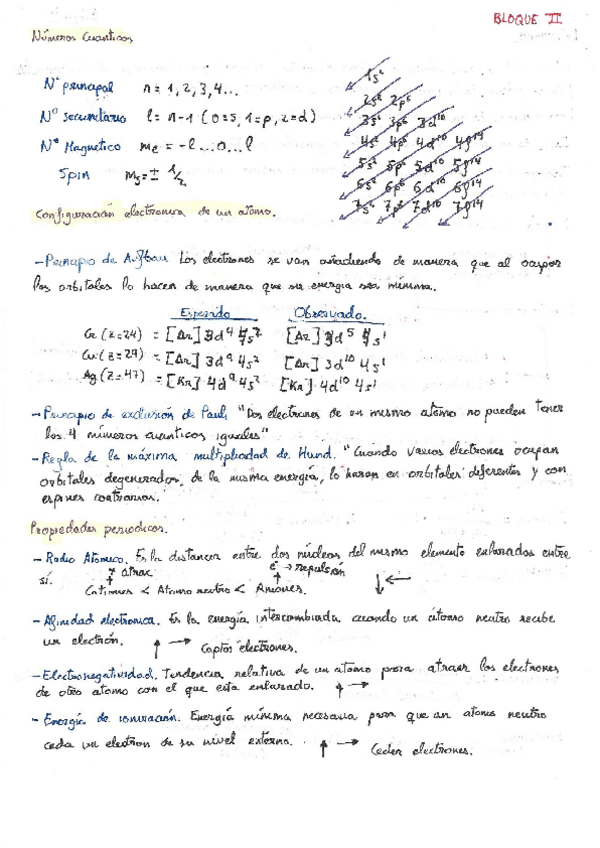 BLOQUE II
Números Cuanticos
Nº principal n = 1, 2, 3, 4...
Nº secundario l = n-1 (0=s, 1=p, 2=d)
Nº Magnetico me = -l...0...l
Spin ms = ± 1/2
1s²
2s² 2p⁶
3s² 3p⁶ 3d¹⁰
4s² 4p⁶ 4d¹⁰ 4f¹⁴
5s² 5p⁶ 5d¹⁰ 5f¹⁴
6s² 6p⁶ 6d¹⁰ 6f¹⁴
7s² 7p⁶ 7d¹⁰ 7f¹⁴
Configuración electronica de un atomo.
- Principio de Aufbau Los electrones se van añadiendo de manera que al ocupar
los orbitales lo hacen de manera que su energia sea mínima.
Esperado Observado.
Cr (z=24) = [Ar] 3d⁴ 4s² [Ar] 3d⁵ 4s¹
Cu (z=29) = [Ar] 3d⁹ 4s² [Ar] 3d¹⁰ 4s¹
Ag (z=47) = [Kr] 4d⁹ 4s² [Kr] 4d¹⁰ 4s¹
- Principio de exclusión de Pauli "Dos electrones de un mismo atomo no pueden tener
los 4 números cuanticos iguales"
- Regla de la máxima multiplicidad de Hund. "Cuando varios electrones ocupan
orbitales degenerados, de la misma energía, lo haran en orbitales diferentes y con
espines contrarios."
Propiedades periodicas.
- Radio Atomico. Es la distancia entre dos núcleos del mismo elemento enlazados entre
sí. + atrac. e⁻ → repulsión
Cationes < Atomo neutro < Aniones. ↓←
- Afinidad electronica. Es la energía intercambiada cuando un átomo neutro recibe
un electrón. ↑ → Captos electrones.
- Electronegatividad. Tendencia relativa de un atomo para atraer los electrones
de otro atomo con el que esta enlazado. ↑ →
- Energía de ionización. Energía mínima necesaria para que un atomo neutro
ceda un electron de su nivel externo. ↑ → Ceder electrones.